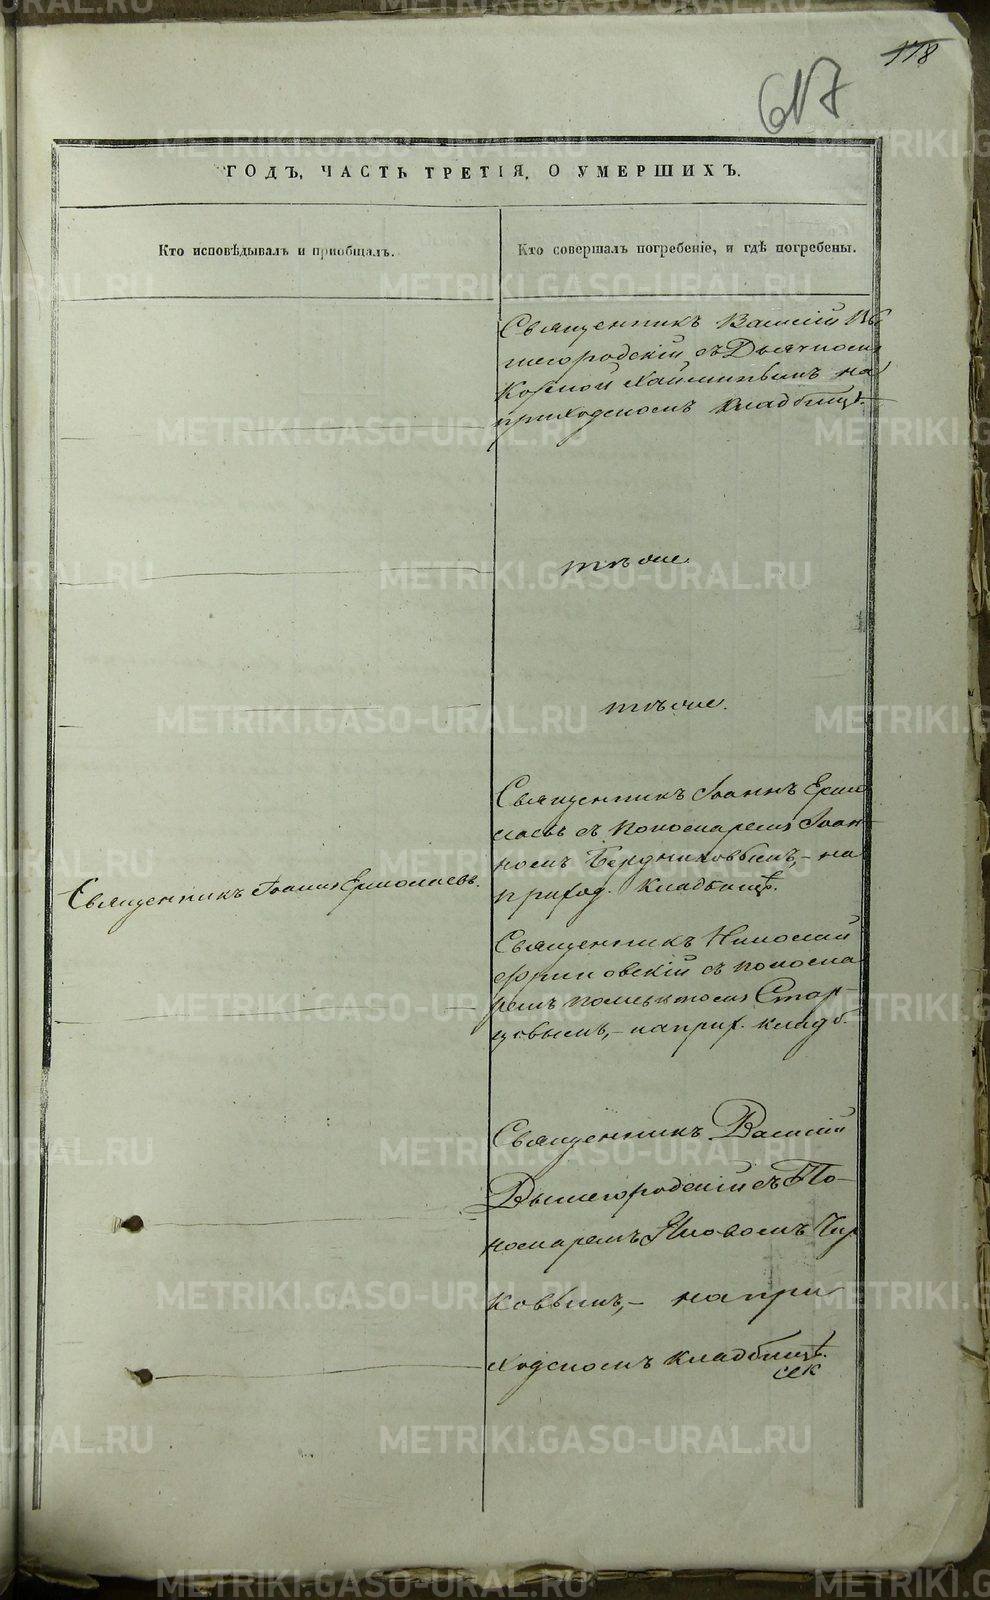 178
617
ГОДЪ, ЧАСТЬ ТРЕТІЯ, О УМЕРШИХЪ.
Кто исповѣдывалъ и пріобщалъ.
Кто совершалъ погребеніе, и гдѣ погребены.
Священникъ Василій Вы
шегородскій съ Дьячкомъ
Козмой на
приходскомъ кладбищѣ.
тѣ же
тѣ же.
Священникъ Іоаннъ Ермо
лаевъ съ пономаремъ Іоан-
номъ Бердниковымъ, – на
приход. кладбищѣ.
Священникъ Іоаннъ Ермолаевъ.
Священникъ Николай
съ понома
ремъ Стар-
цовымъ, – на прих. кладб.
Священникъ Василій
Вышегородскій съ По-
номаремъ Чир
ковымъ, – на при
ходскомъ кладбищѣ.
METRIKI.GASO-URAL.RU